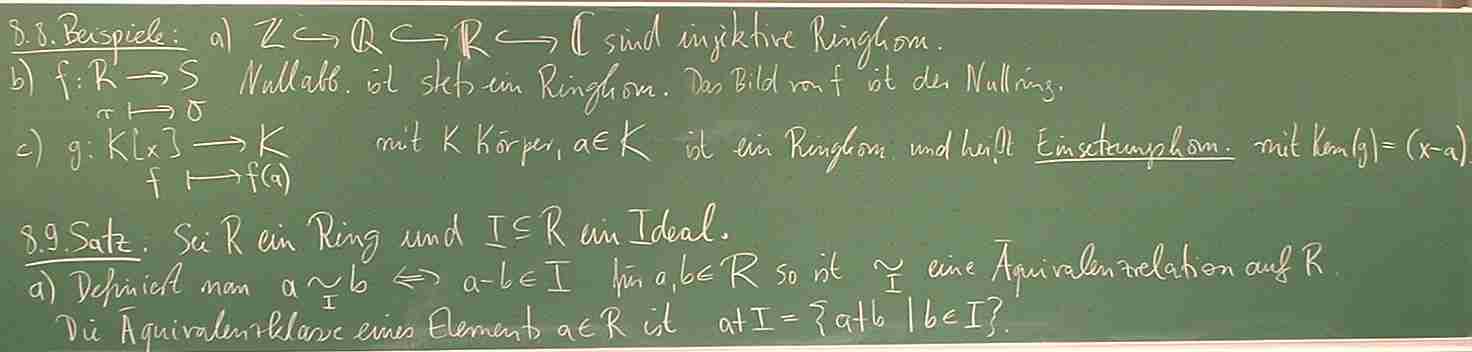 8.8. Beispiele: a) ℤ ↪ ℚ ↪ ℝ ↪ ℂ sind injektive Ringhom.
b) f: R → S Nullabb. ist stets ein Ringhom. Das Bild von f ist der Nullring.
r ↦ 0
c) g: K[x] → K mit K Körper, a ∈ K ist ein Ringhom. und heißt Einsetzungshom. mit Kern(g) = (x-a).
f ↦ f(a)
8.9. Satz: Sei R ein Ring und I ⊆ R ein Ideal.
a) Definiert man a ~_I b ⇔ a-b ∈ I für a, b ∈ R so ist ~_I eine Äquivalenzrelation auf R.
Die Äquivalenzklasse eines Elements a ∈ R ist a+I = {a+b | b ∈ I}.